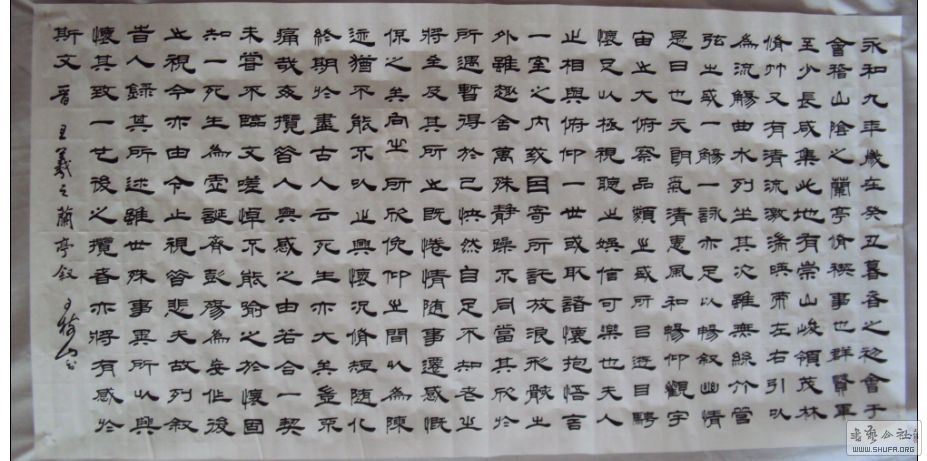 永和九年歲在癸丑暮春之初會于
會稽山陰之蘭亭脩禊事也群賢畢
至少長咸集此地有崇山峻領茂林
脩竹又有清流激湍映帶左右引以
為流觴曲水列坐其次雖無絲竹管
弦之盛一觴一詠亦足以暢敘幽情
是日也天朗氣清惠風和暢仰觀宇
宙之大俯察品類之盛所以遊目騁
懷足以極視聽之娛信可樂也夫人
之相與俯仰一世或取諸懷抱悟言
一室之內或因寄所託放浪形骸之
外雖趣舍萬殊靜躁不同當其欣於
所遇暫得於己怏然自足不知老之
將至及其所之既惓情隨事遷感慨
係之矣向之所欣俛仰之間以為陳
迹猶不能不以之興懷況脩短隨化
終期於盡古人云死生亦大矣豈不
痛哉每攬昔人興感之由若合一契
未嘗不臨文嗟悼不能喻之於懷固
知一死生為虛誕齊彭殤為妄作後
之視今亦由今之視昔悲夫故列敘
旹人錄其所述雖世殊事異所以興
懷其致一也後之攬者亦將有感於
斯文 晉王羲之蘭亭敘
書藝公社
WWW.SHUFA.ORG